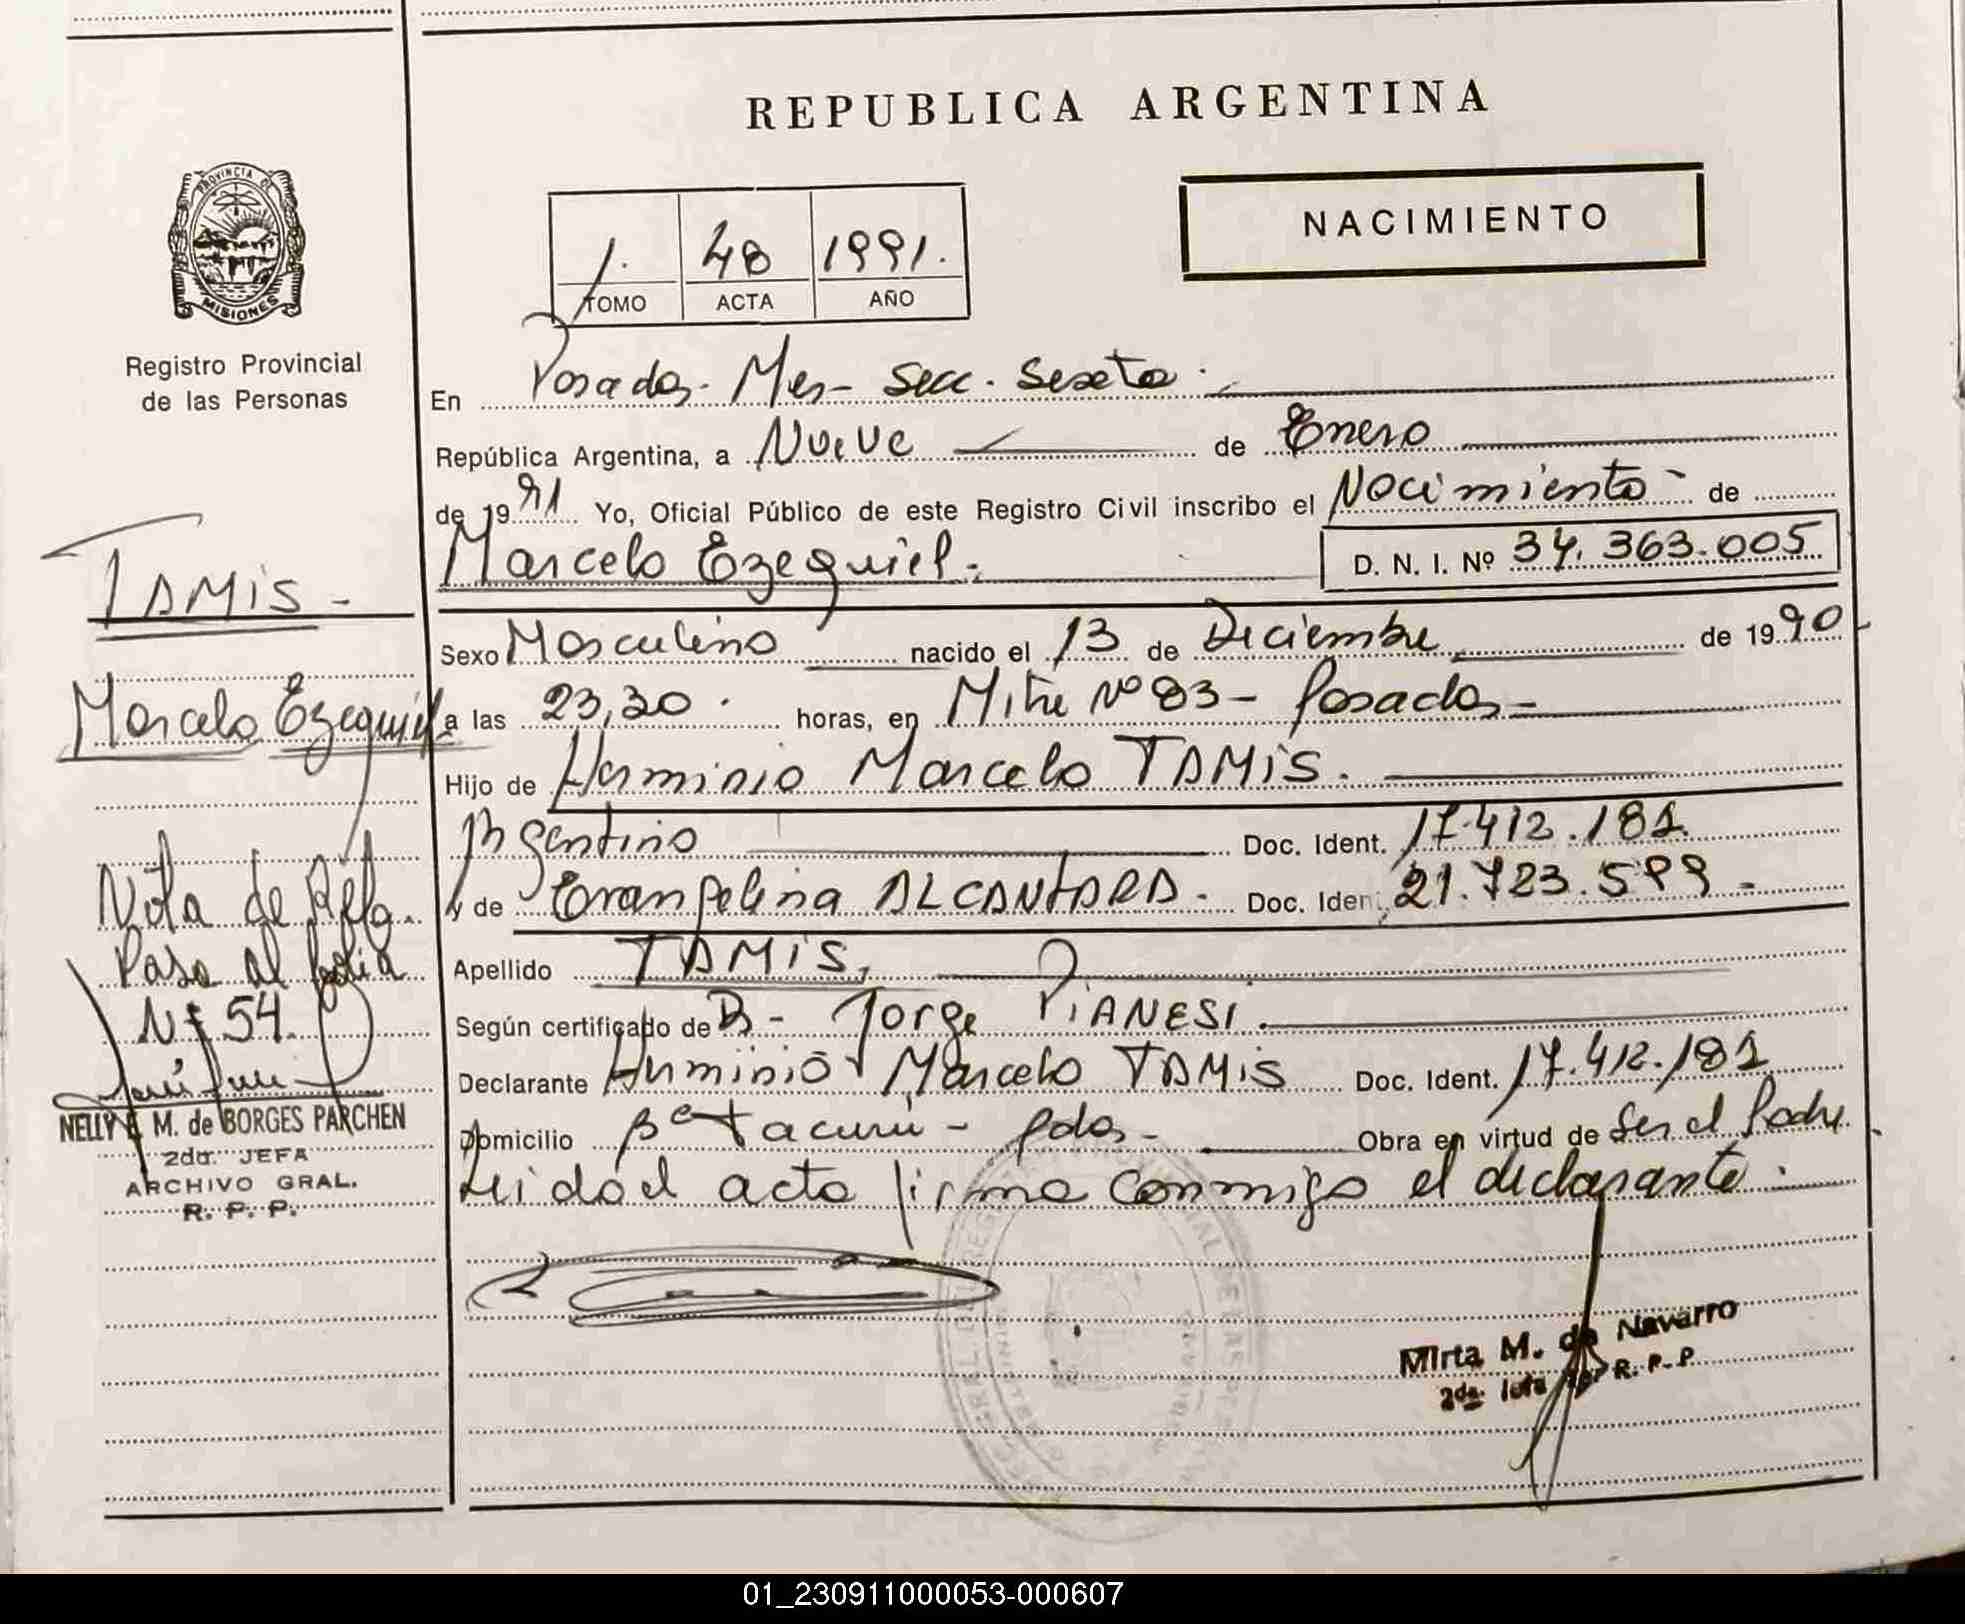 REPUBLICA ARGENTINA
PROVINCIA DE
MISIONES
Registro Provincial
de las Personas
1. 48 1991.
TOMO ACTA AÑO
NACIMIENTO
En Posadas. Mnes- Secc. Sexta.
República Argentina, a Nueve de Enero
de 1991 Yo, Oficial Público de este Registro Civil inscribo el Nacimiento de
Marcelo Ezequiel. D. N. I. Nº 34.363.005
Sexo Masculino nacido el 13 de Diciembre de 1990
a las 23,30. horas, en Mitre Nº 83 - Posadas-
Hijo de Herminio Marcelo TAMIS.
Argentino Doc. Ident. 17.412.181
y de Evangelina ALCANTARA. Doc. Iden. 21.723.599-
Apellido TAMIS,
Según certificado de Dr- Jorge PIANESI.
Declarante Herminio Marcelo TAMIS Doc. Ident. 17.412.181
Domicilio Bº Tacurú - Pdas- Obra en virtud de Ser el Padre
Leida el acta firma conmigo el declarante.
Mirta M. de Navarro
2da. Jefa R. P. P.
TAMIS-
Marcelo Ezequiel
Nota de Refa.
Pasa al folio
Nº 54.
NELLY E. M. de BORGES PARCHEN
2da. JEFA
ARCHIVO GRAL.
R. P. P.
01_230911000053-000607